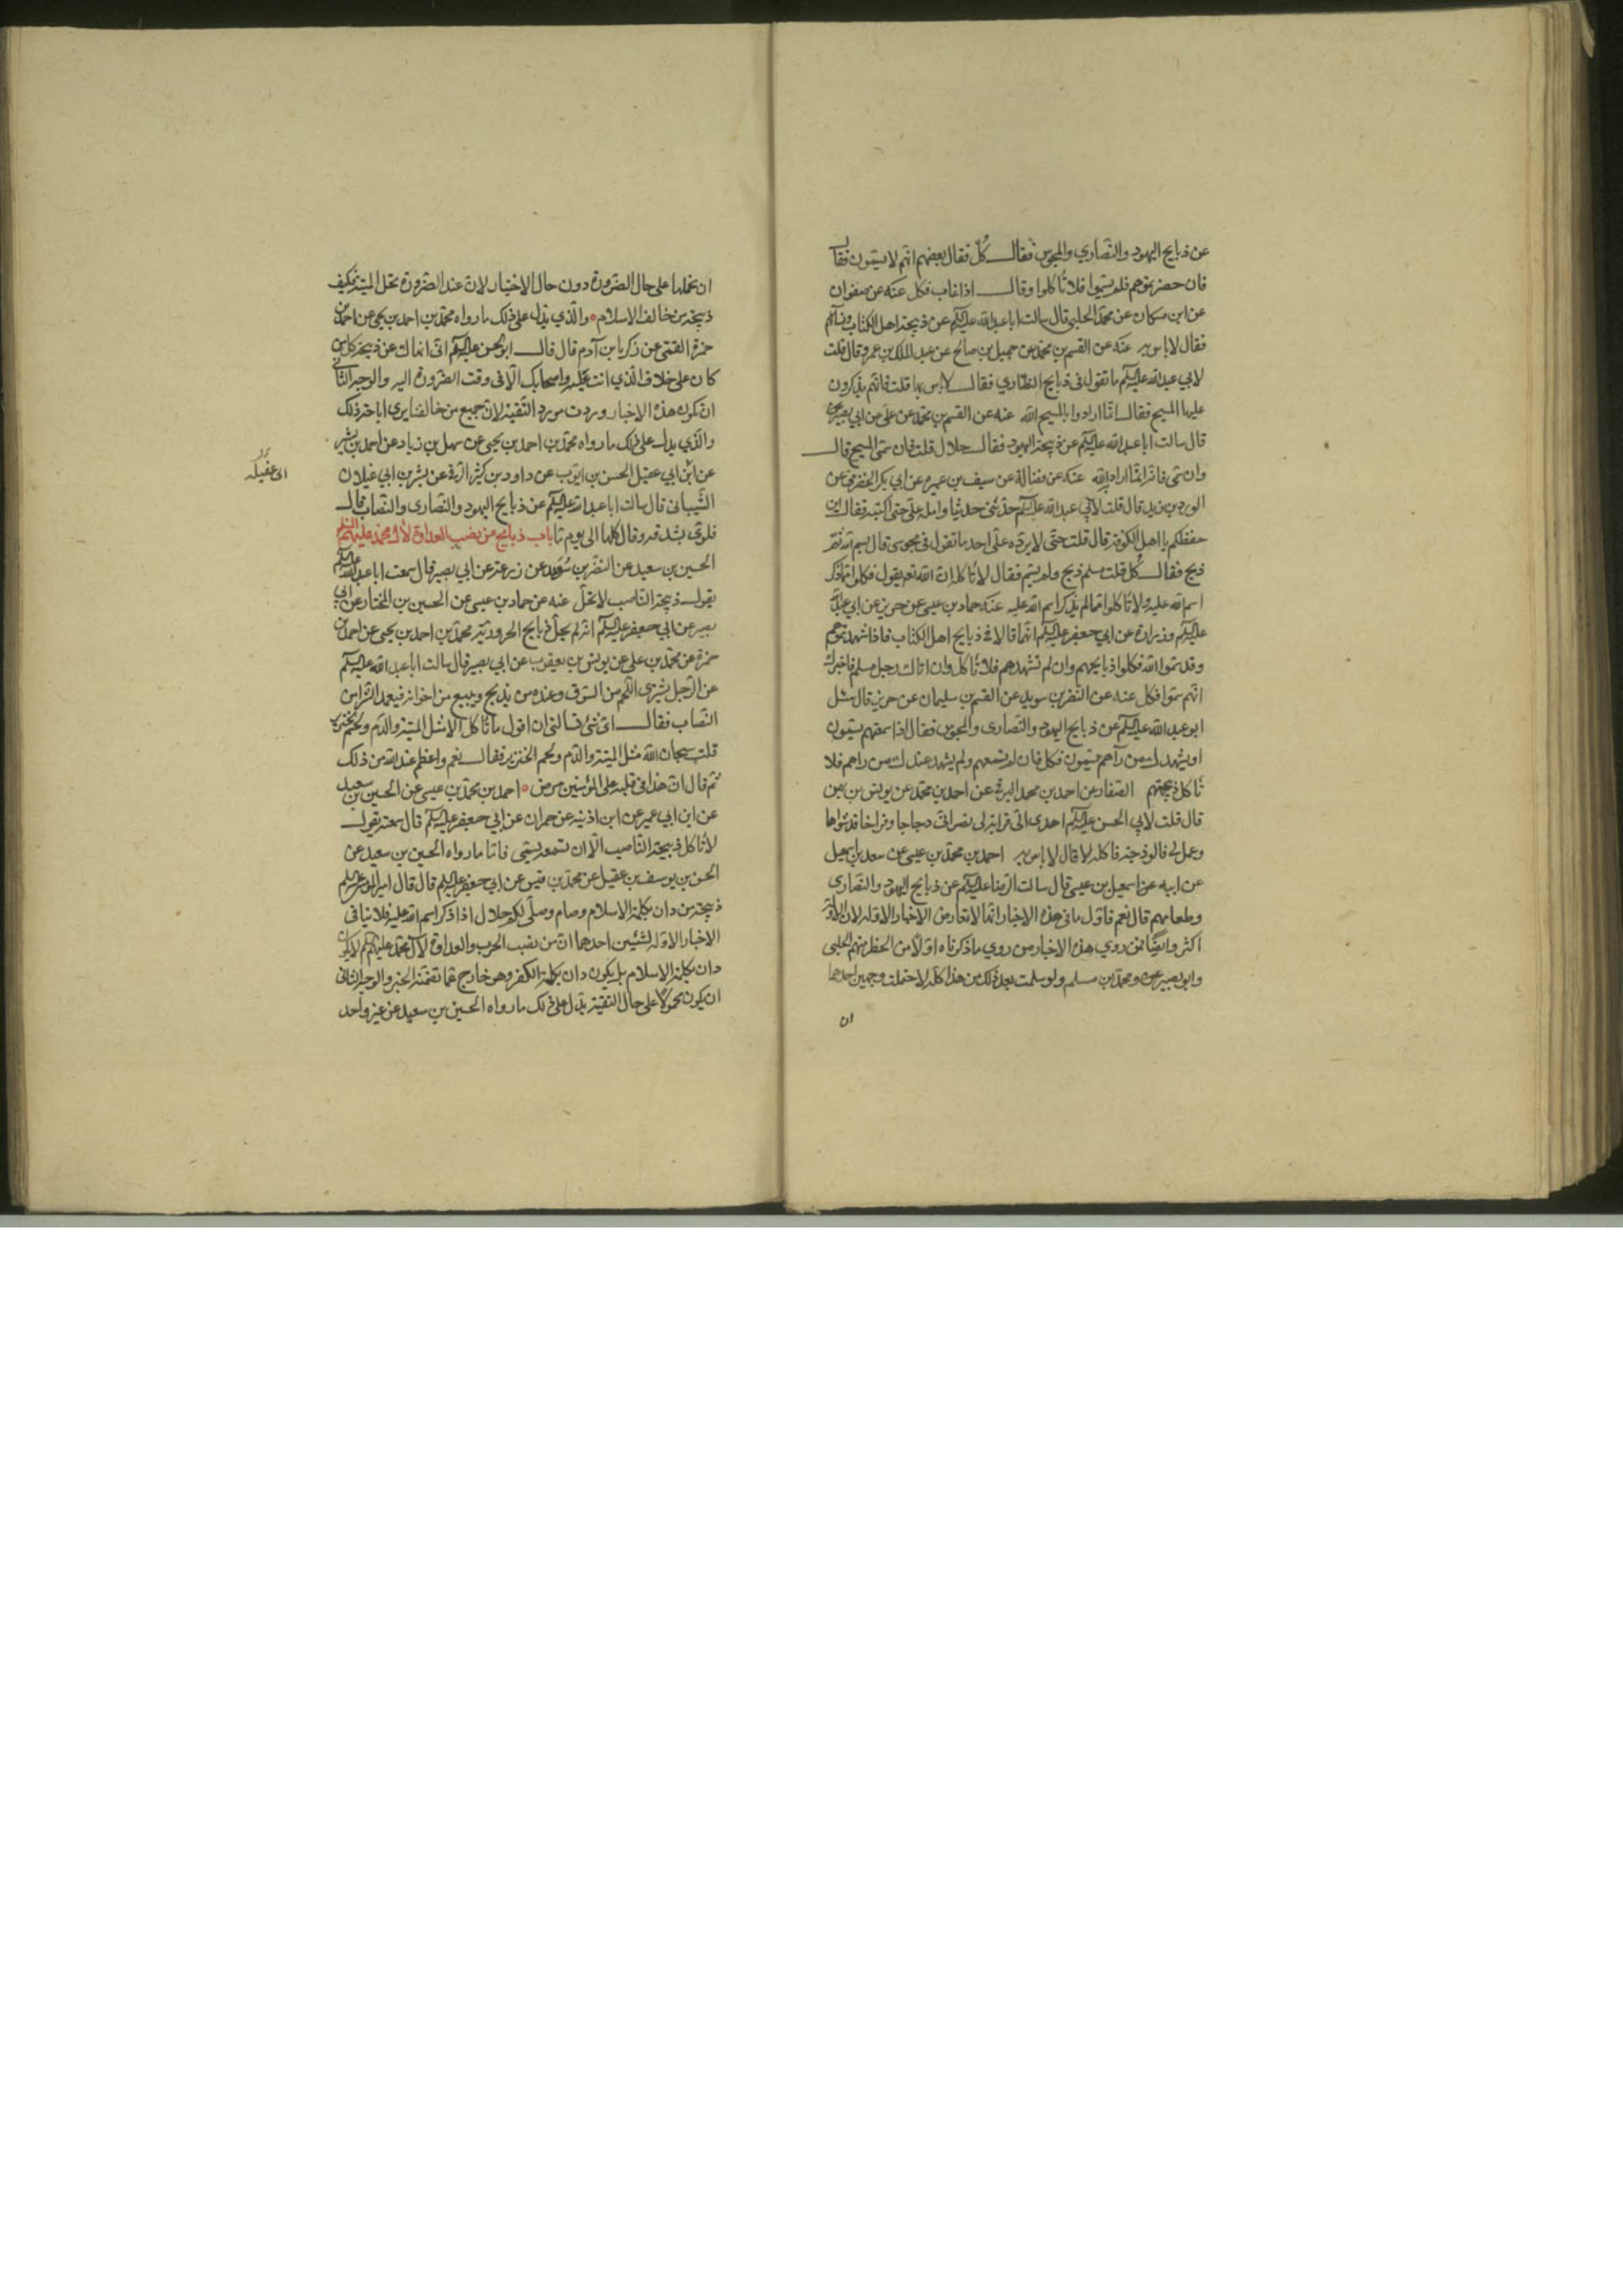 عن ذبايح اليهود والنصاري والمجوس فقال كل فقال بعضهم انهم لا يسمون فقال
فان حضرتموهم فلم يسموا فلا تاكلوا وقال اذا غاب فكل عنه عن صفوان
عن ابن مسكان عن محمد الحلبي قال سالت ابا عبد الله عليه السلم عن ذبيحة اهل الكتاب ونسائهم
فقال لا باس به عنه عن القسم بن محمد عن جميل بن صالح عن عبد الملك بن عمرو قال قلت
لابي عبد الله عليه السلم ما تقول في ذبايح النصاري فقال لا باس بها قلت فانهم يذكرون
عليها المسيح فقال انما ارادوا بالمسيح الله عنه عن القسم بن محمد عن علي عن ابي بصير
قال سالت ابا عبد الله عليه السلم عن ذبيحة اليهود فقال حلال قلت فان سمى المسيح قال
وان سمى فانه انما اراد الله عنه عن فضالة عن سيف بن عميرة عن ابي بكر الحضرمي عن
الورد بن زيد قال قلت لابي عبد الله عليه السلم حدثني حديثا وامله علي حتى اكتبه فقال اين
حفظكم يا اهل الكوفة قال قلت حتى لا يرده علي احد ما تقول في مجوسي قال بسم الله ثم
ذبح فقال كل قلت مسلم ذبح ولم يسم فقال لا تاكله ان الله تعم يقول فكلوا مما ذكر
اسم الله عليه ولا تاكلوا مما لم يذكر اسم الله عليه عنه حماد بن عيسى عن حريز عن ابي عبد الله
عليه السلم وزرارة عن ابي جعفر عليه السلم انهما قالا في ذبايح اهل الكتاب فاذا شهدتموهم
وقد سموا الله فكلوا ذبايحهم وان لم تشهدهم فلا تاكل وان اتاك رجل مسلم فاخبرك
انهم سموا فكل عنه عن النضر بن سويد عن القسم بن سليمان عن حريز قال سئل
ابو عبد الله عليه السلم عن ذبايح اليهود والنصارى والمجوس فقال اذا سمعتهم يسمون
او يشهد لك من رآهم يسمون فكل فان لم تسمعهم ولم يشهد عندك من راهم فلا
تاكل ذبيحتهم الصفار عن احمد بن محمد البرقي عن احمد بن محمد عن يونس بن بهمن
قال قلت لابي الحسن عليه السلم اهدى الي قرابة لي نصراني دجاجا وفراخا قد شواها
وعمل لي فالوذجة فاكله لا قال لا باس به احمد بن محمد بن عيسى عن سعد بن اسمعيل
عن ابيه عن اسمعيل بن عيسى قال سالت الرضا عليه السلم عن ذبايح اليهود والنصارى
وطعامهم قال نعم فاول ما في هذه الاخبار انها لا تعارض الاخبار الاولة لان الاولة
اكثر وايضا فمن روي هذه الاخبار من روي ما ذكرناه اولا من الحظر منهم الحلبي
وابو بصير ومحمد بن مسلم ولو سلمت بعد ذلك من هذا كله لاحتملت وجهين احدهما
ان
ان نحملها على حال الضرورة دون حال الاختيار لان عند الضرورة تحل الميتة فكيف
ذبيحة من خالف الاسلام والذي يدل على ذلك ما رواه محمد بن احمد بن يحيى عن احمد بن
حمزة القمي عن زكريا بن آدم قال قال ابو الحسن عليه السلم اني انهاك عن ذبيحة كل من
كان على خلاف الذي انت عليه واصحابك الا في وقت الضرورة اليه والوجه الثاني
ان تكون هذه الاخبار وردت مورد التقية لان جميع من خالفنا يرى اباحة ذلك
والذي يدل على ذلك ما رواه محمد بن احمد بن يحيى عن سهل بن زياد عن احمد بن بشير
عن ابن ابي عقيل الحسن بن ايوب عن داود بن كثير الرقي عن بشر بن ابي غيلان
الشيباني قال سالت ابا عبد الله عليه السلم عن ذبايح اليهود والنصارى والنصاب قال
فلوى شدقه وقال كلها الى يوم ما باب ذبايح من نصب العداوة لال محمد عليهم السلم
الحسين بن سعيد عن النضر بن سويد عن زرعة عن ابي بصير قال سمعت ابا عبد الله عليه السلم
يقول ذبيحة الناصب لا تحل عنه عن حماد بن عيسى عن الحسين بن المختار عن ابي
بصير عن ابي جعفر عليه السلم انه لم يحل ذبايح الحرورية محمد بن احمد بن يحيى عن احمد بن
حمزة عن محمد بن علي عن يونس بن يعقوب عن ابي بصير قال سالت ابا عبد الله عليه السلم
عن الرجل يشتري اللحم من السوق وعنده من يذبح ويبيع من اخوانه فيعمد الشراء من
النصاب فقال اي شيء تسالني ان اقول ما تاكل الا مثل الميتة والدم ولحم الخنزير
قلت سبحان الله مثل الميتة والدم ولحم الخنزير فقال نعم واعظم عند الله من ذلك
ثم قال ان هذا في قلبه على المؤمنين مرض احمد بن محمد بن عيسى عن الحسين بن سعيد
عن ابن ابي عمير عن ابن اذينة عن حمران عن ابي جعفر عليه السلم قال سمعته يقول
لا تاكل ذبيحة الناصب الا ان تسمعه يسمي فاما ما رواه الحسين بن سعيد عن
الحسن بن يوسف بن عقيل عن محمد بن قيس عن ابي جعفر عليه السلم قال قال امير المؤمنين عليه السلم
ذبيحة من دان بكلمة الاسلام وصام وصلى لكم حلال اذا ذكر اسم الله عليه فلا ينافي
الاخبار الاولة لشيئين احدهما ان من نصب الحرب والعداوة لآل محمد عليهم السلم لا يكون
دان بكلمة الاسلام بل يكون دان بكلمة الكفر وهو خارج عما تضمنه الخبر والوجه الثاني
ان يكون محمولا على حال التقية يدل على ذلك ما رواه الحسين بن سعيد عن غير واحد